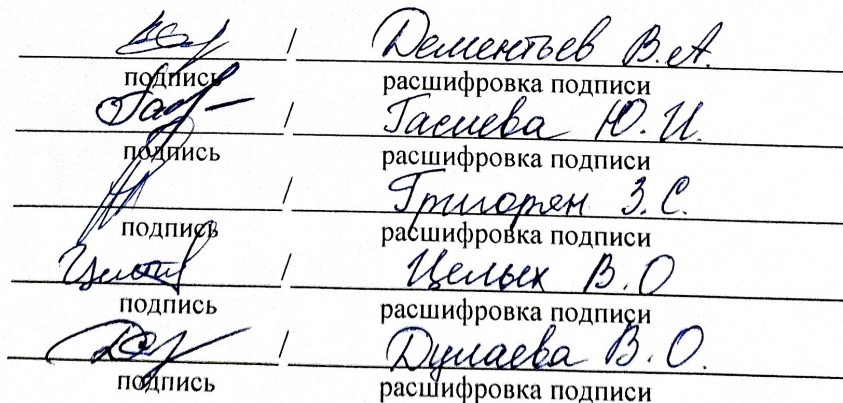 / Дементьев В.А.
подпись расшифровка подписи
/ Гасиева Ю.И.
подпись расшифровка подписи
/ Григорян З.С.
подпись расшифровка подписи
/ Целых В.О
подпись расшифровка подписи
/ Дулаева В.О.
подпись расшифровка подписи